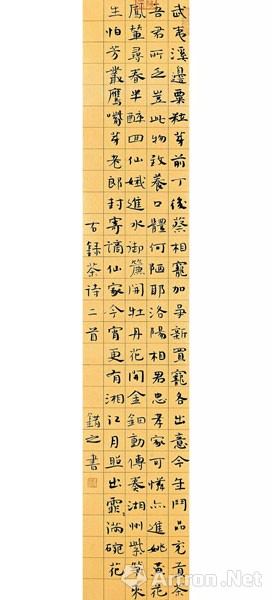 武夷溪邊粟粒芽前丁後蔡相寵加爭新買寵各出意今年鬥品充官茶
吾君所乏豈此物致養口體何陋耶洛陽相君忠孝家可憐亦進姚黃花
鳳輦尋春半醉回仙娥進水御簾開牡丹花開金鈿動傳奏湖州紫笋來
生怕芳叢鷹嘴芽老郎封寄謫仙家今宵更有湘江月照出霏〻滿碗花
右錄茶詩二首 之書
Artron.Net